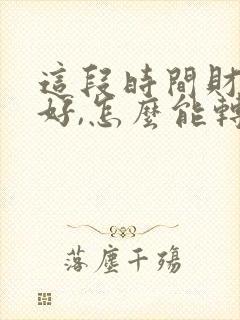 這段時間財
好,怎麼能轉
落塵千殤